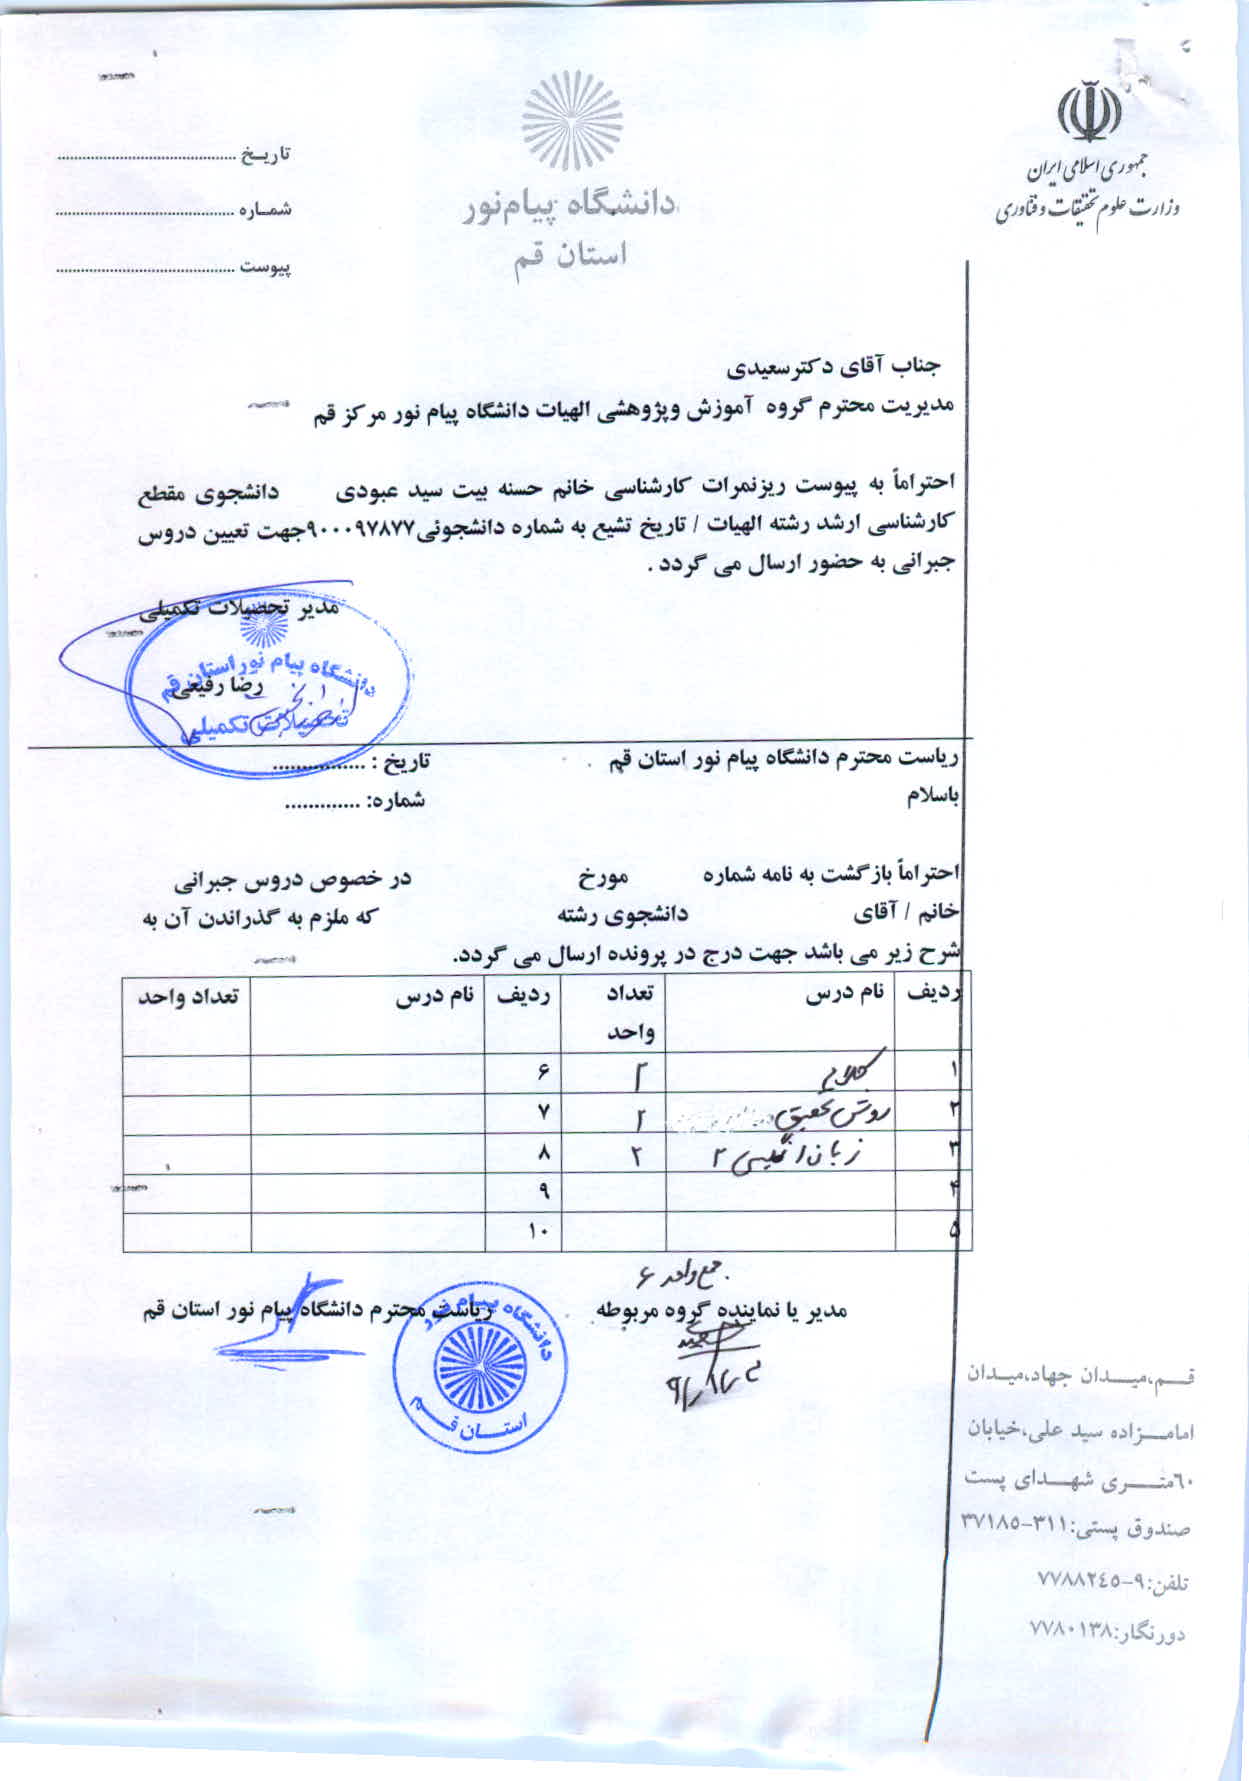 جمهوری اسلامی ایران
وزارت علوم تحقیقات و فناوری
دانشگاه پیام‌نور
استان قم
تاریـخ ..........................................
شمـاره ..........................................
پیوست ..........................................
جناب آقای دکترسعیدی
مدیریت محترم گروه آموزش وپژوهشی الهیات دانشگاه پیام نور مرکز قم
احتراماً به پیوست ریزنمرات کارشناسی خانم حسنه بیت سید عبودی دانشجوی مقطع
کارشناسی ارشد رشته الهیات / تاریخ تشیع به شماره دانشجوئی۹۰۰۰۹۷۸۷۷جهت تعیین دروس
جبرانی به حضور ارسال می گردد .
مدیر تحصیلات تکمیلی
دانشگاه پیام نور استان قم
رضا رفیعی
تحصیلات تکمیلی
ریاست محترم دانشگاه پیام نور استان قم تاریخ : ................
باسلام شماره: .............
احتراماً بازگشت به نامه شماره مورخ در خصوص دروس جبرانی
خانم / آقای دانشجوی رشته که ملزم به گذراندن آن به
شرح زیر می باشد جهت درج در پرونده ارسال می گردد.
ردیف نام درس تعداد واحد ردیف نام درس تعداد واحد
۱ کلام ۲ ۶
۲ روش تحقیق ۲ ۷
۳ زبان انگلیسی ۲ ۲ ۸
۴ ۹
۵ ۱۰
جمع واحد ۶
مدیر یا نماینده گروه مربوطه ریاست محترم دانشگاه پیام نور استان قم
دانشگاه پیـام نور
استـان قـم
قــم،میــدان جهاد،میـدان
امامــزاده سید علی،خیابان
۶۰متـــری شهــدای پست
صندوق پستی:۳۱۱-۳۷۱۸۵
تلفن:۹-۷۷۸۸۲۴۵
دورنگار:۷۷۸۰۱۳۸